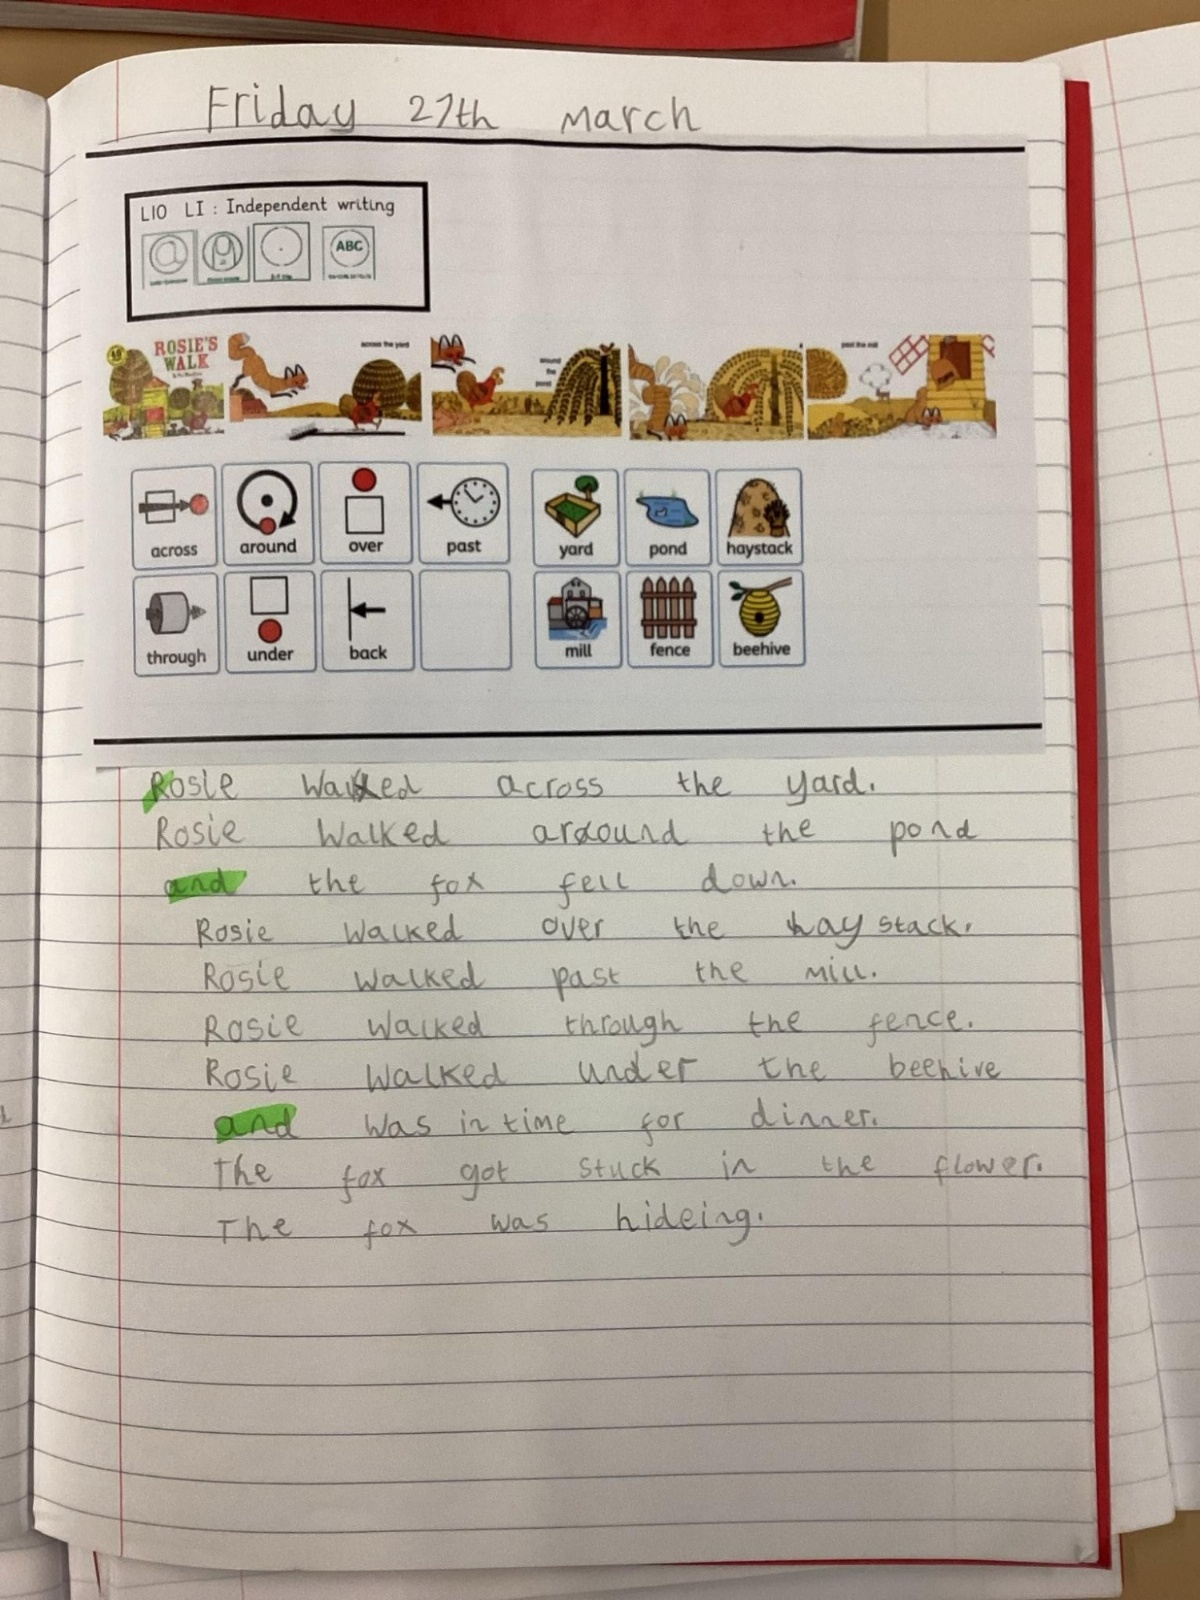 Friday 27th march
L10 LI : Independent writing
ABC
ROSIE'S
WALK
across the yard
around
the
pond
past the mill
across around over past yard pond haystack
through under back mill fence beehive
Rosie walked across the yard.
Rosie walked around the pond
and the fox fell down.
Rosie walked over the hay stack.
Rosie walked past the mill.
Rosie walked through the fence.
Rosie walked under the beehive
and was in time for dinner.
The fox got stuck in the flower.
The fox was hideing.